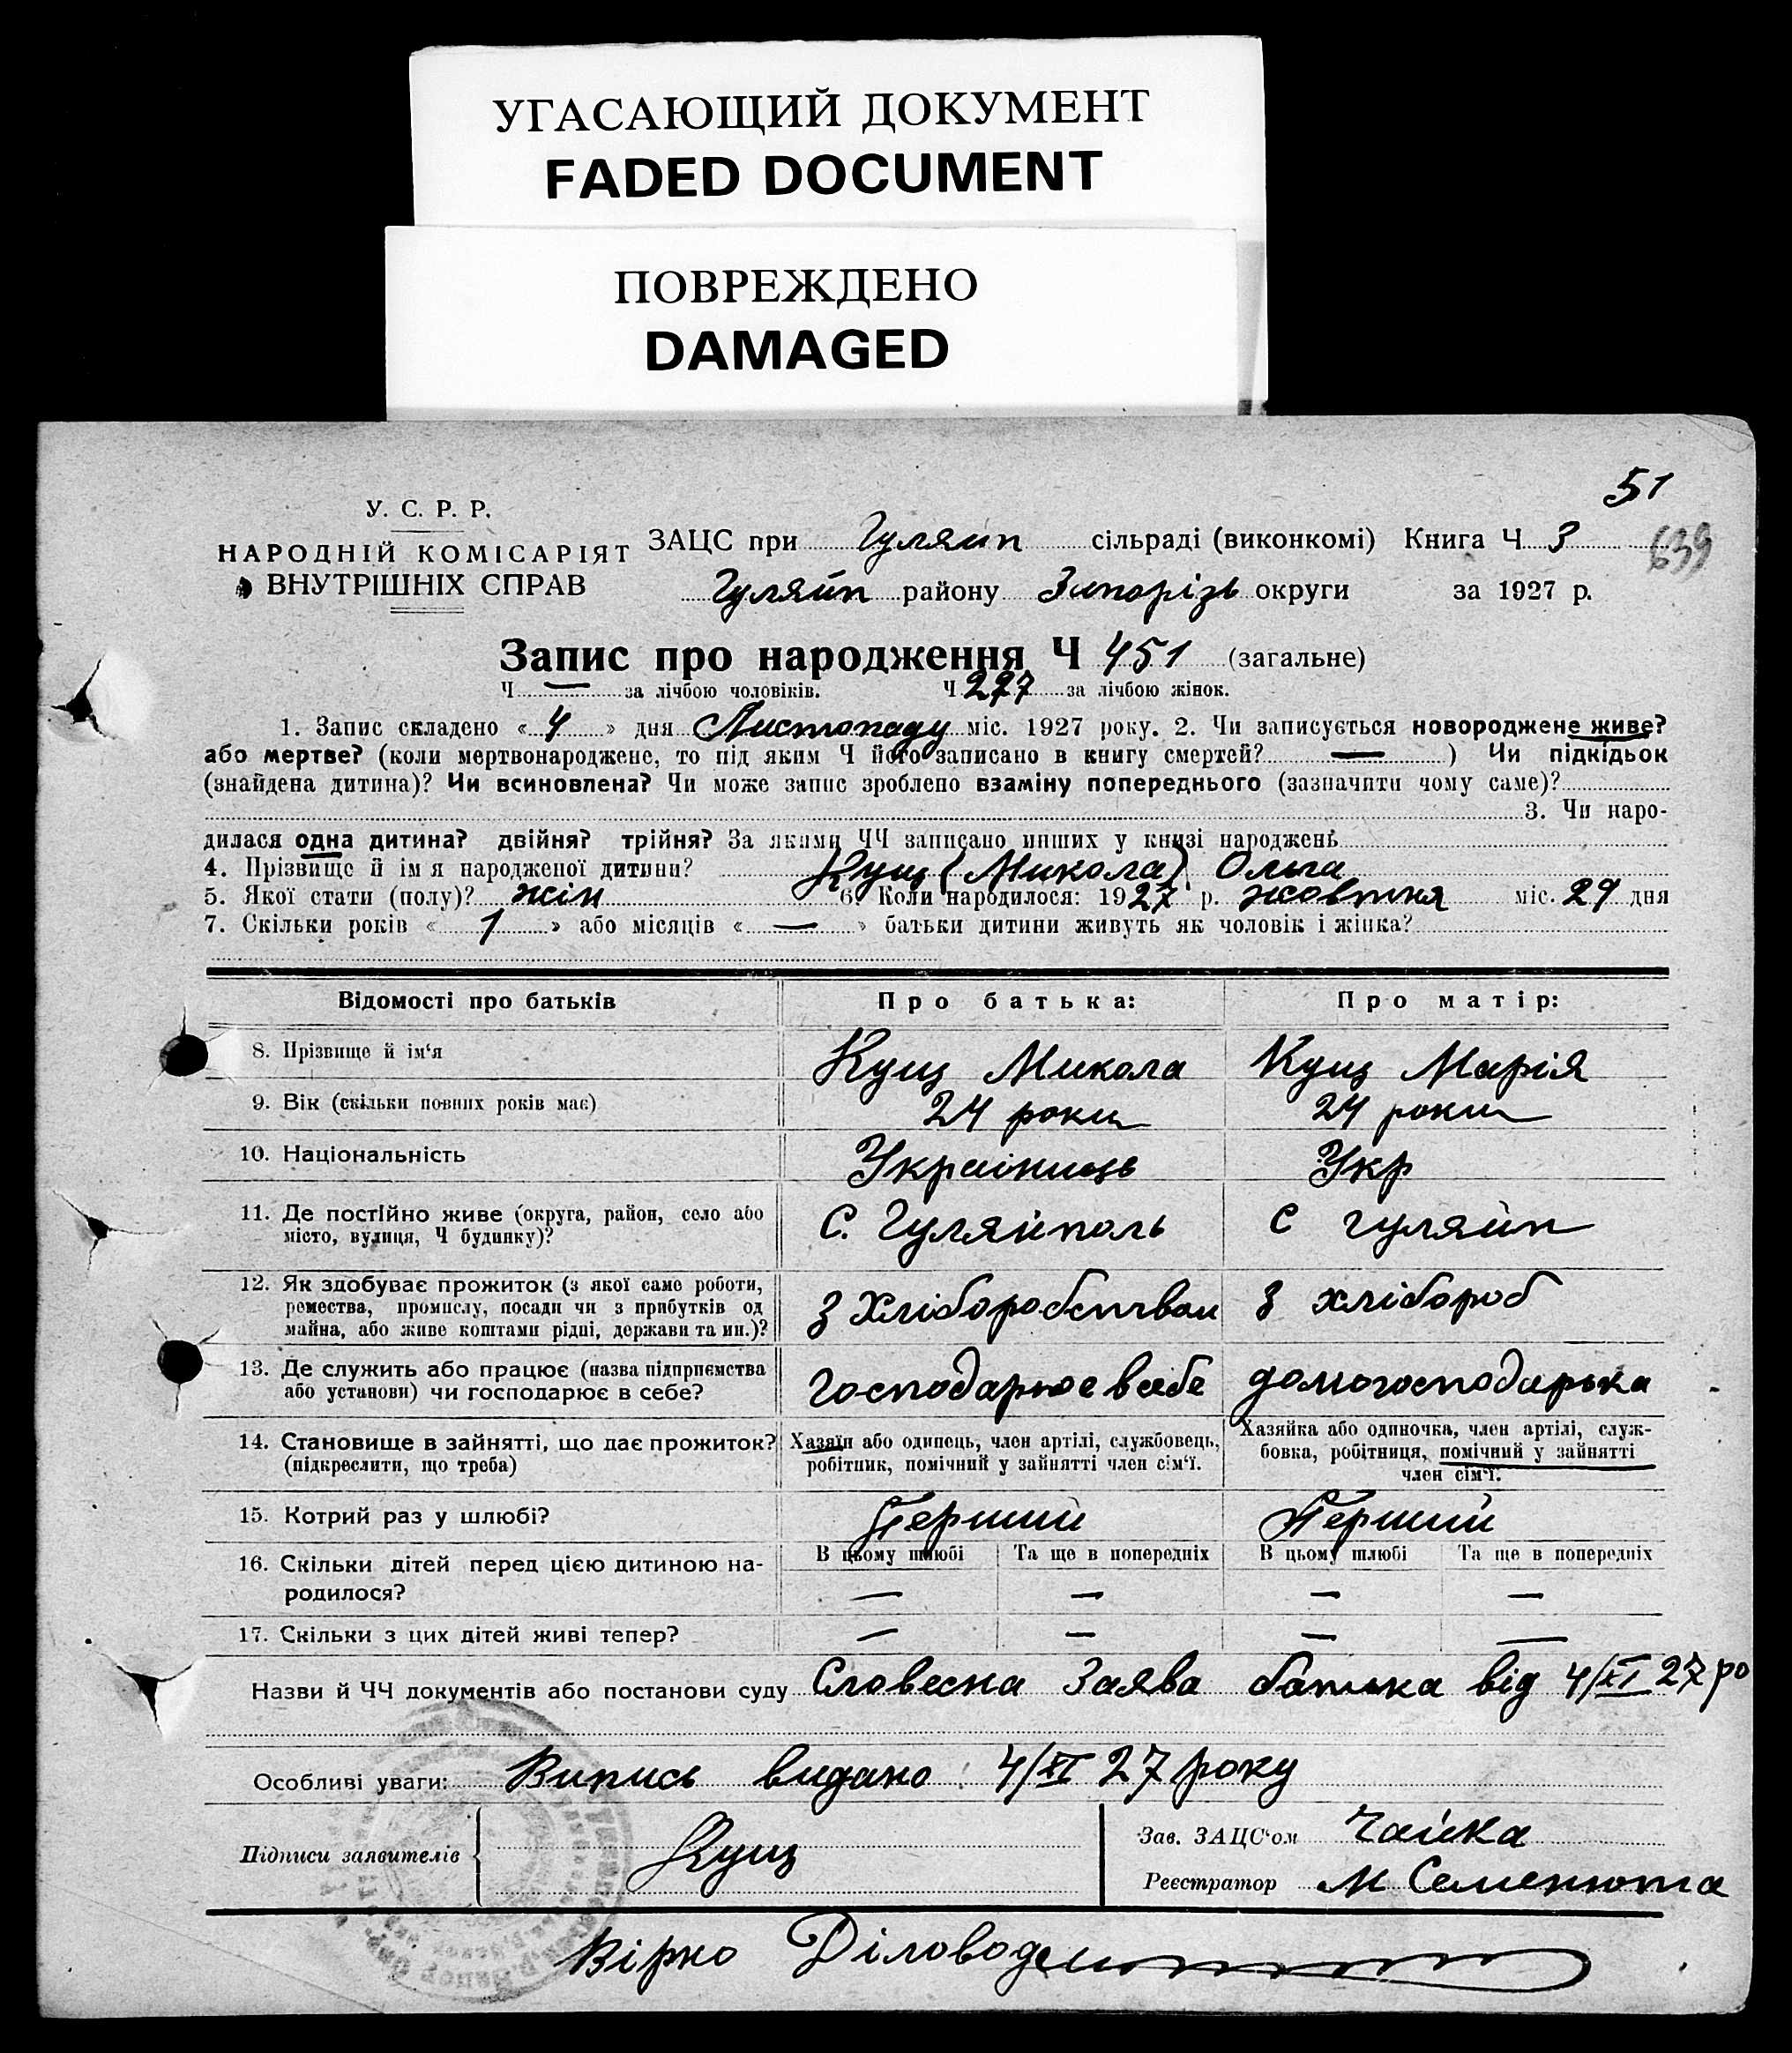 УГАСАЮЩИЙ ДОКУМЕНТ
FADED DOCUMENT
ПОВРЕЖДЕНО
DAMAGED
51
639
У. С. Р. Р.
НАРОДНІЙ КОМІСАРІЯТ
ВНУТРІШНІХ СПРАВ
ЗАЦС при Гуляйп сільраді (виконкомі) Книга Ч 3
Гуляйп району Запорізь округи за 1927 р.
Запис про народження Ч 451 (загальне)
Ч — за лічбою чоловіків. Ч 227 за лічбою жінок.
1. Запис складено « 4 » дня Листопаду міс. 1927 року. 2. Чи записується новороджене живе?
або мертве? (коли мертвонароджене, то під яким Ч його записано в книгу смертей? — ) Чи підкідьок
(знайдена дитина)? Чи всиновлена? Чи може запис зроблено взаміну попереднього (зазначити чому саме)?
3. Чи наро-
дилася одна дитина? двійня? трійня? За якими ЧЧ записано инших у книзі народжень
4. Прізвище й ім я народженої дитини? Кущ (Микола) Ольга
5. Якої стати (полу)? жін 6. Коли народилося: 1927 р. жовтня міс. 29 дня
7. Скільки років « 1 » або місяців « — » батьки дитини живуть як чоловік і жінка?
Відомості про батьків Про батька: Про матір:
8. Прізвище й ім‘я Кущ Микола Кущ Марія
9. Вік (скільки повних років має) 24 роки 24 роки
10. Національність Україниць Укр
11. Де постійно живе (округа, район, село або
місто, вулиця, Ч будинку)? С. Гуляйполь С гуляйп
12. Як здобуває прожиток (з якої саме роботи,
ремества, промислу, посади чи з прибутків од
майна, або живе коштами рідні, держави та ин.)? З Хліборобством З хлібороб
13. Де служить або працює (назва підприемства
або установи) чи господарює в себе? господарює в себе домогосподарька
14. Становище в зайнятті, що дає прожиток?
(підкреслити, що треба)
Хазяїн або одинець, член артілі, службовець,
робітник, помічний у зайнятті член сім‘ї.
Хазяйка або одиночка, член артілі, служ-
бовка, робітниця, помічний у зайнятті
член сім‘ї.
15. Котрий раз у шлюбі? Перший Перший
16. Скільки дітей перед цією дитиною на-
родилося?
В цьому шлюбі Та ще в попередніх В цьому шлюбі Та ще в попередніх
— — — —
17. Скільки з цих дітей живі тепер? — — — —
Назви й ЧЧ документів або постанови суду Словесна Заява батька від 4/XI 27 ро
Особливі уваги: Випись видано 4/XI 27 року
Підписи заявителів Кущ
Зав. ЗАЦС‘ом Чайка
Реєстратор М Семенюта
Вірно Діловод